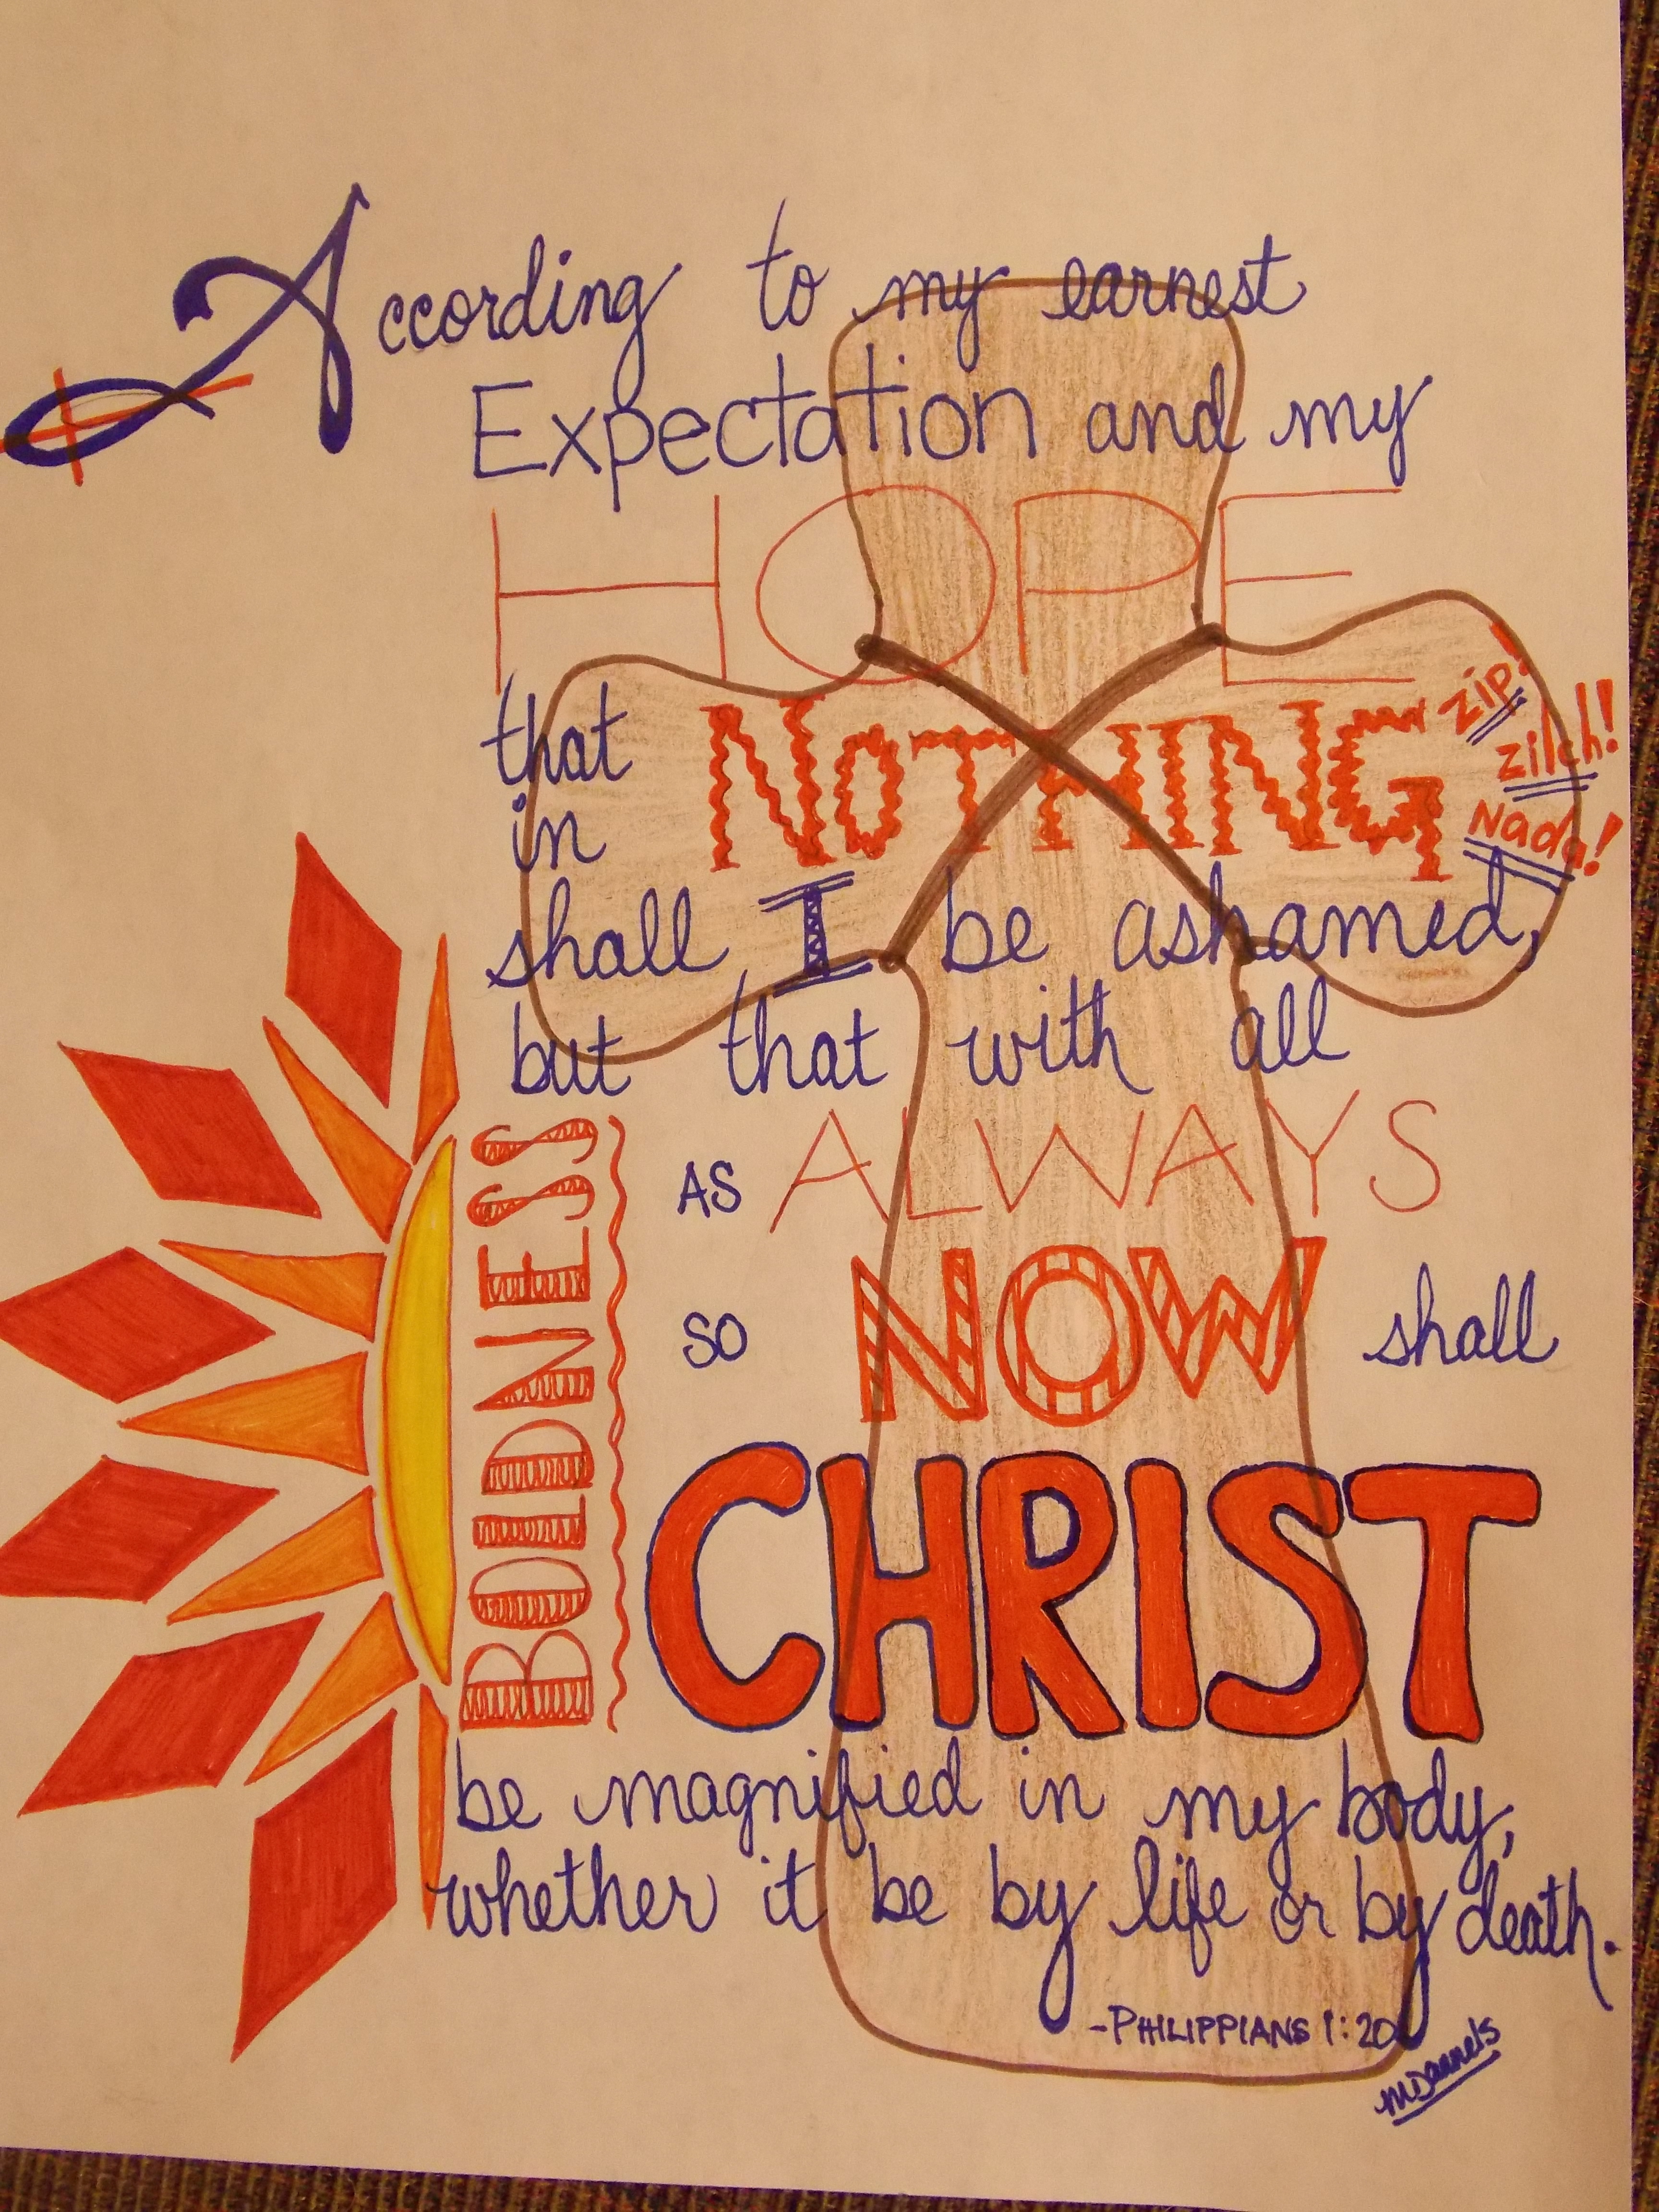 According to my earnest
Expectation and my
HOPE
that NOTHING zip!
zilch!
in Nada!
shall I be ashamed,
but that with all
BOLDNESS
AS ALWAYS
SO NOW shall
CHRIST
be magnified in my body,
whether it be by life or by death.
-PHILIPPIANS 1:20
MDannels